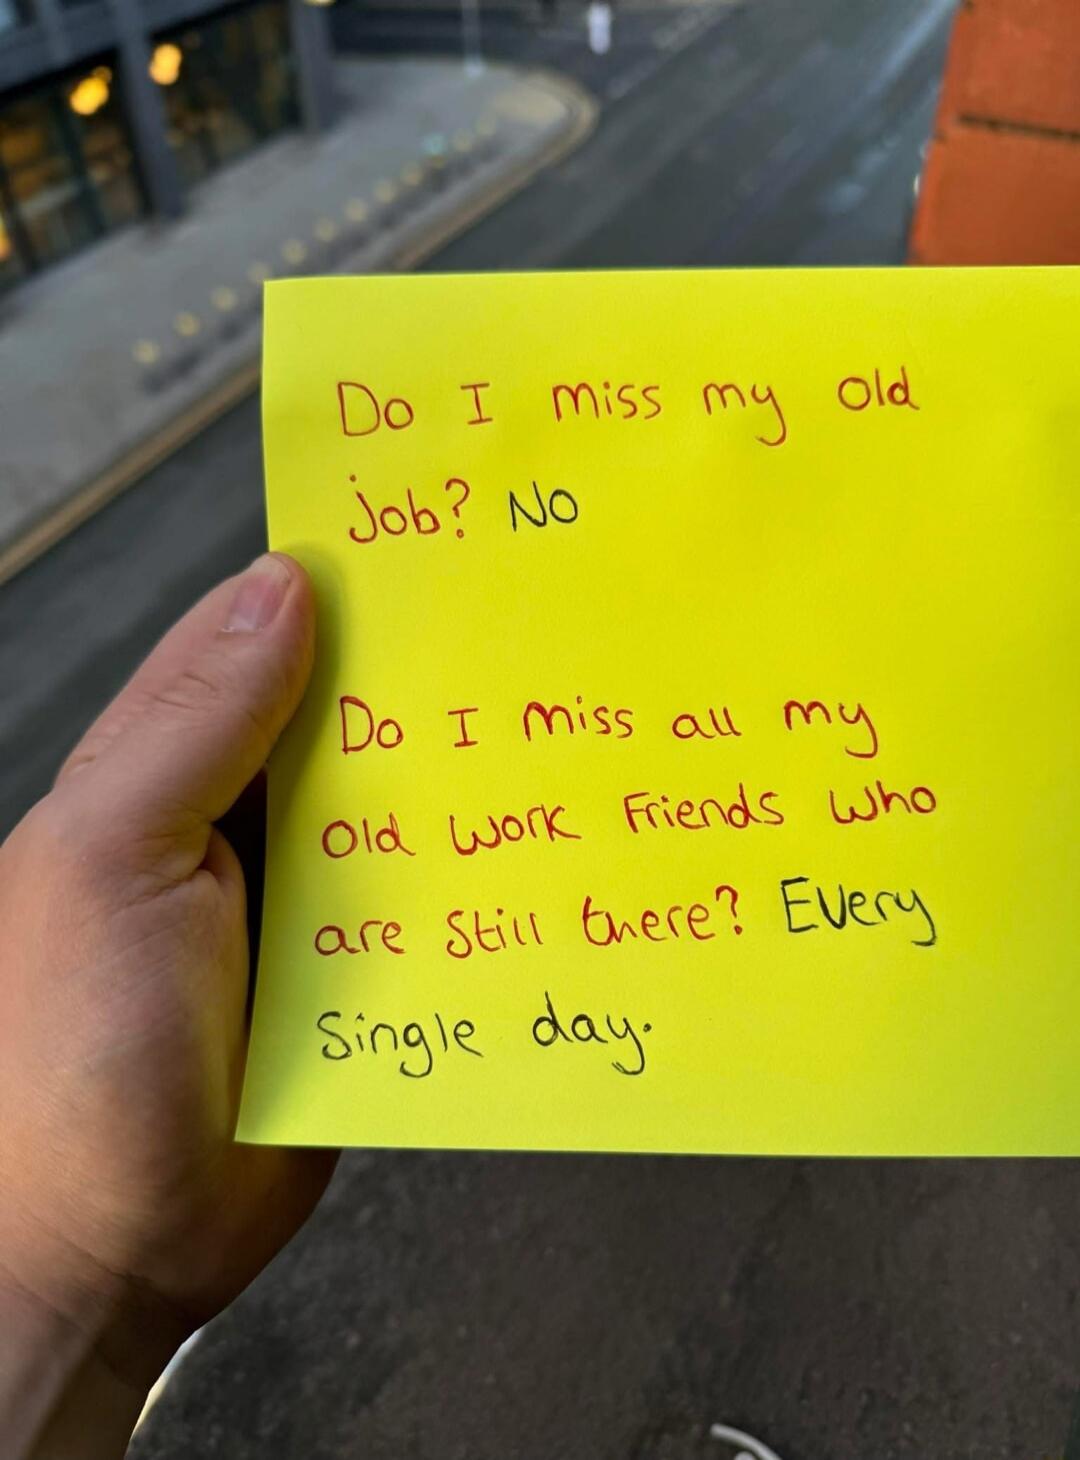 Do I miss my old
job? NO
Do I miss all my
old work Friends who
are still there? Every
single day.